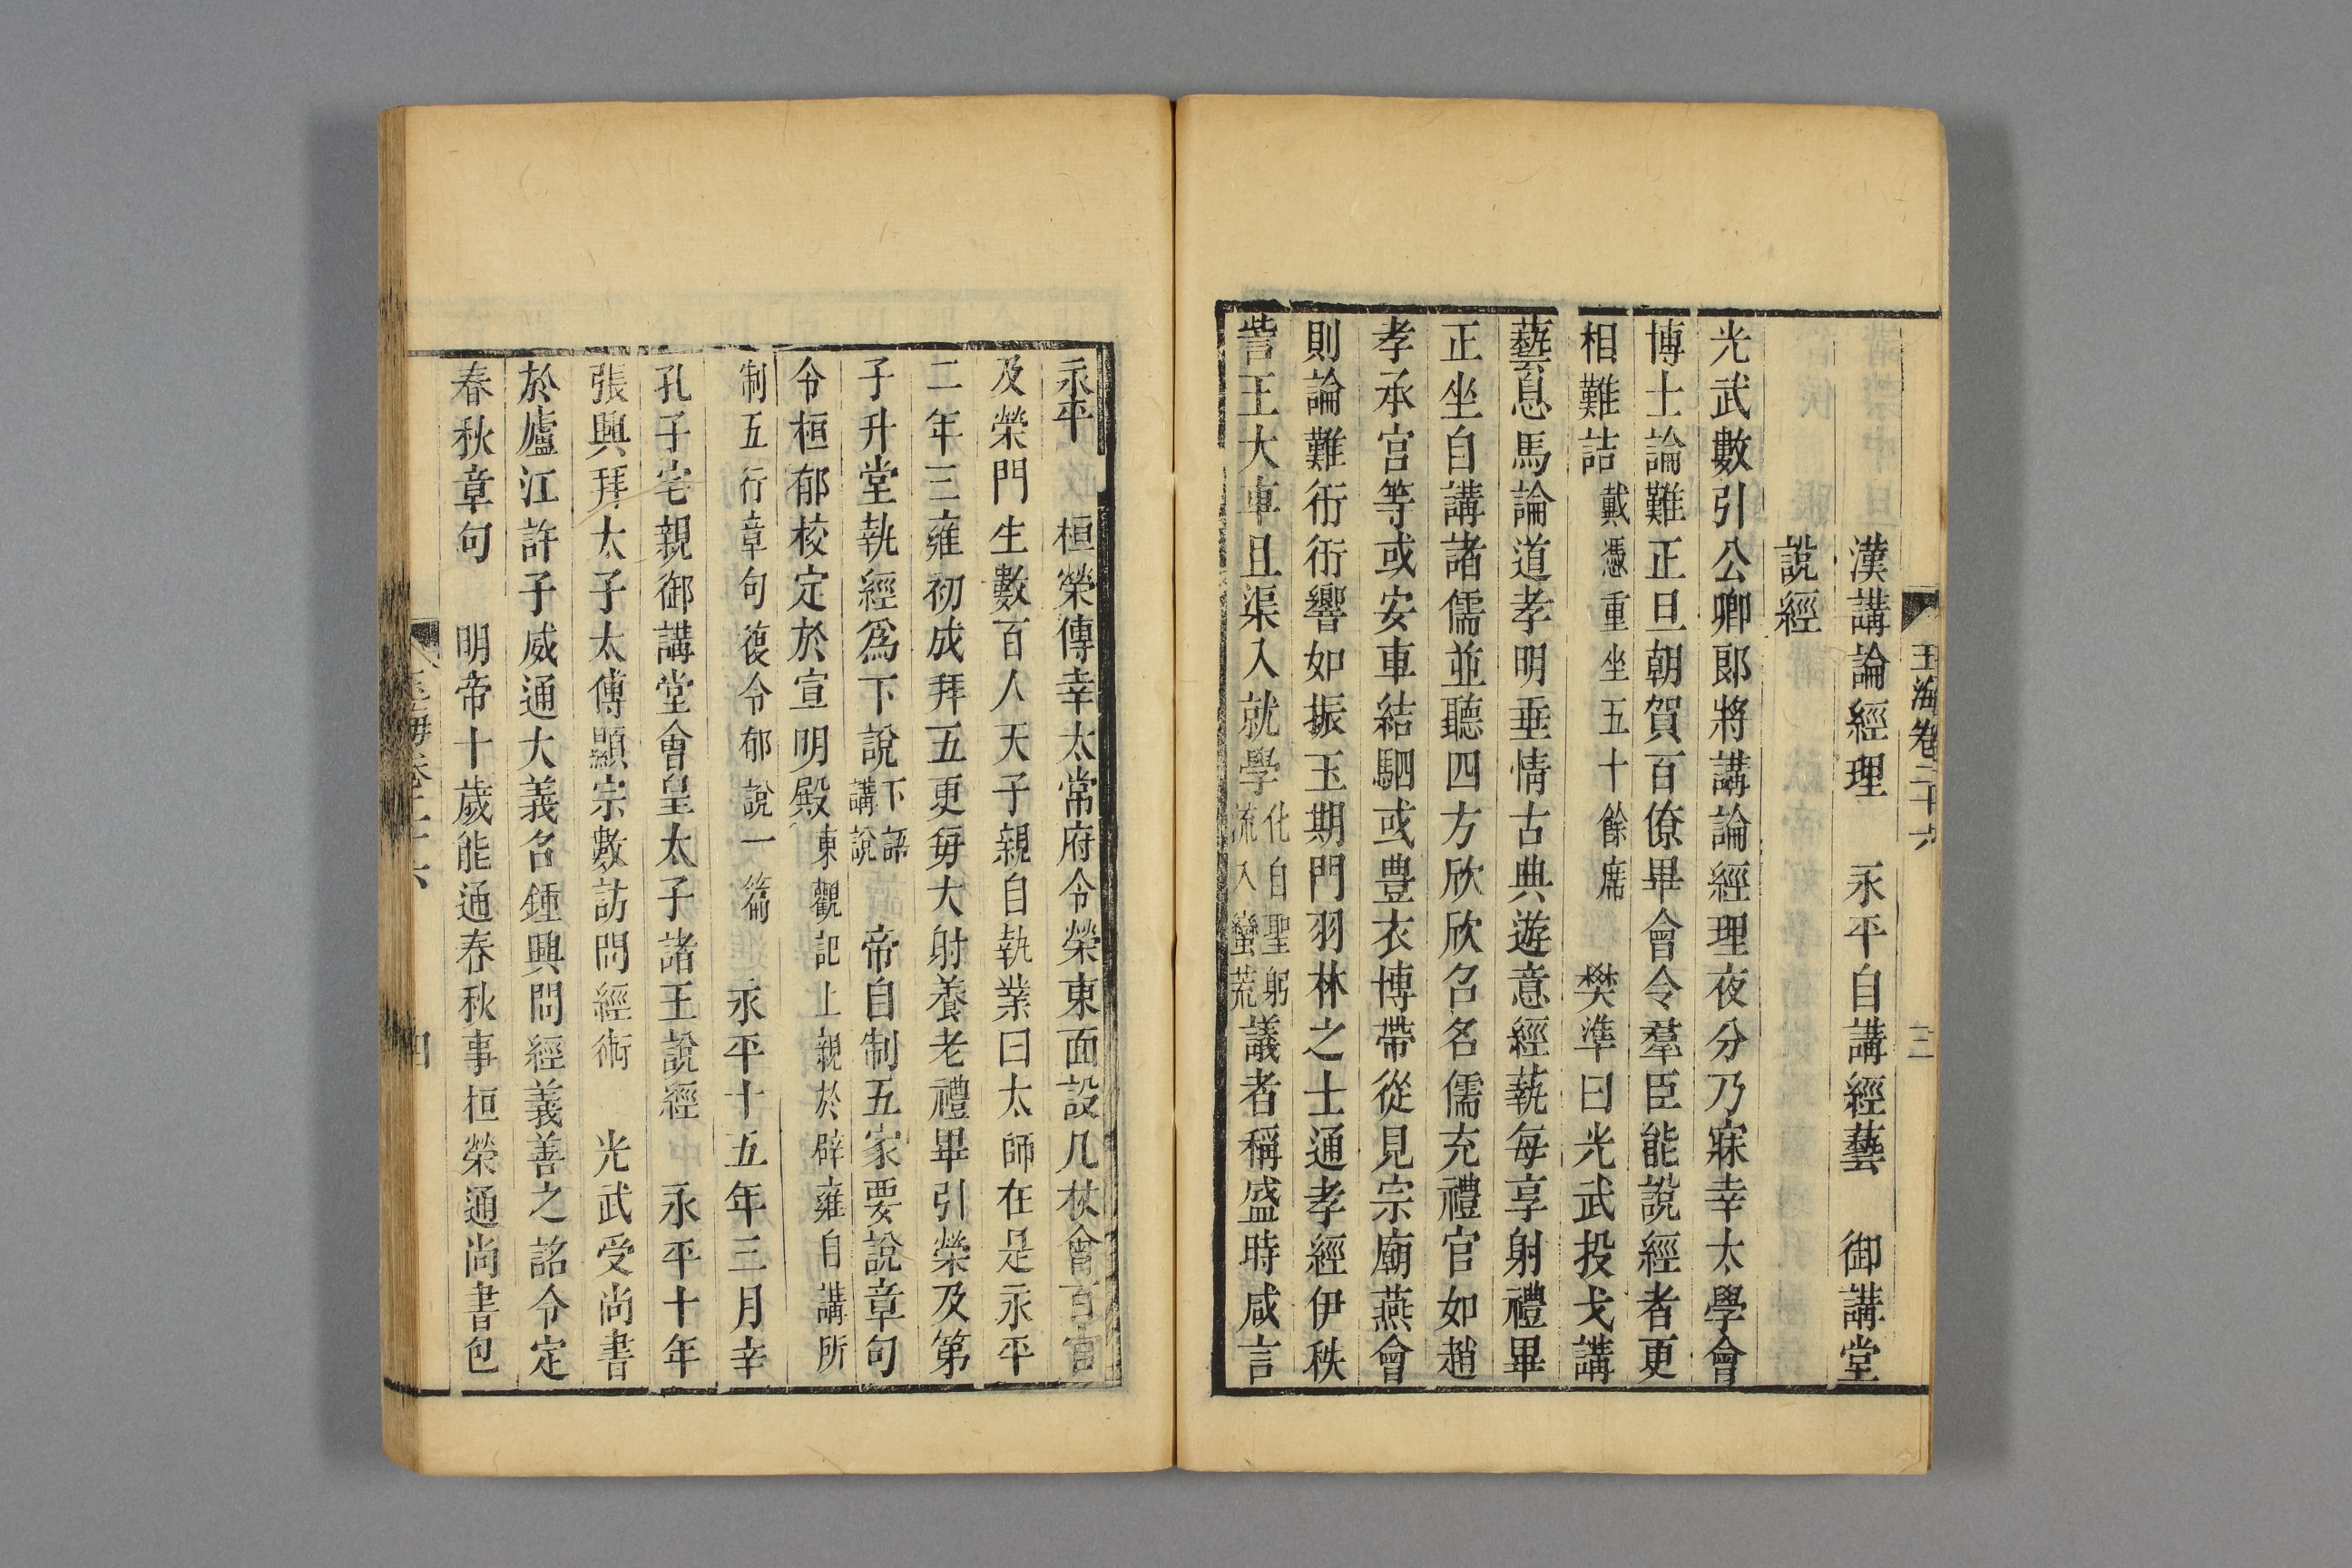 玉海卷二十六
三
漢講論經理　永平自講經藝　御講堂
說經
光武數引公卿郎將講論經理夜分乃寐幸太學會
博士論難正旦朝賀百僚畢會令羣臣能說經者更
相難詰戴憑重坐五十餘席　樊準曰光武投戈講
藝息馬論道孝明垂情古典遊意經蓺每享射禮畢
正坐自講諸儒並聽四方欣欣召名儒充禮官如趙
孝承宮等或安車結駟或豊衣博帶從見宗廟燕會
則論難衎衎響如振玉期門羽林之士通孝經伊秩
訾王大車且渠入就學化自聖躬流入蠻荒議者稱盛時咸言
永平　桓榮傳幸太常府令榮東面設几杖會百官
及榮門生數百人天子親自執業曰太師在是永平
二年三雍初成拜五更每大射養老禮畢引榮及第
子升堂執經爲下說下語講說　帝自制五家要說章句
令桓郁校定於宣明殿東觀記上親於辟雍自講所
制五行章句復令郁說一篇　永平十五年三月幸
孔子宅親御講堂會皇太子諸王說經　永平十年
張興拜太子太傅顯宗數訪問經術　光武受尚書
於廬江許子威通大義召鍾興問經義善之詔令定
春秋章句　明帝十歲能通春秋事桓榮通尚書包
四